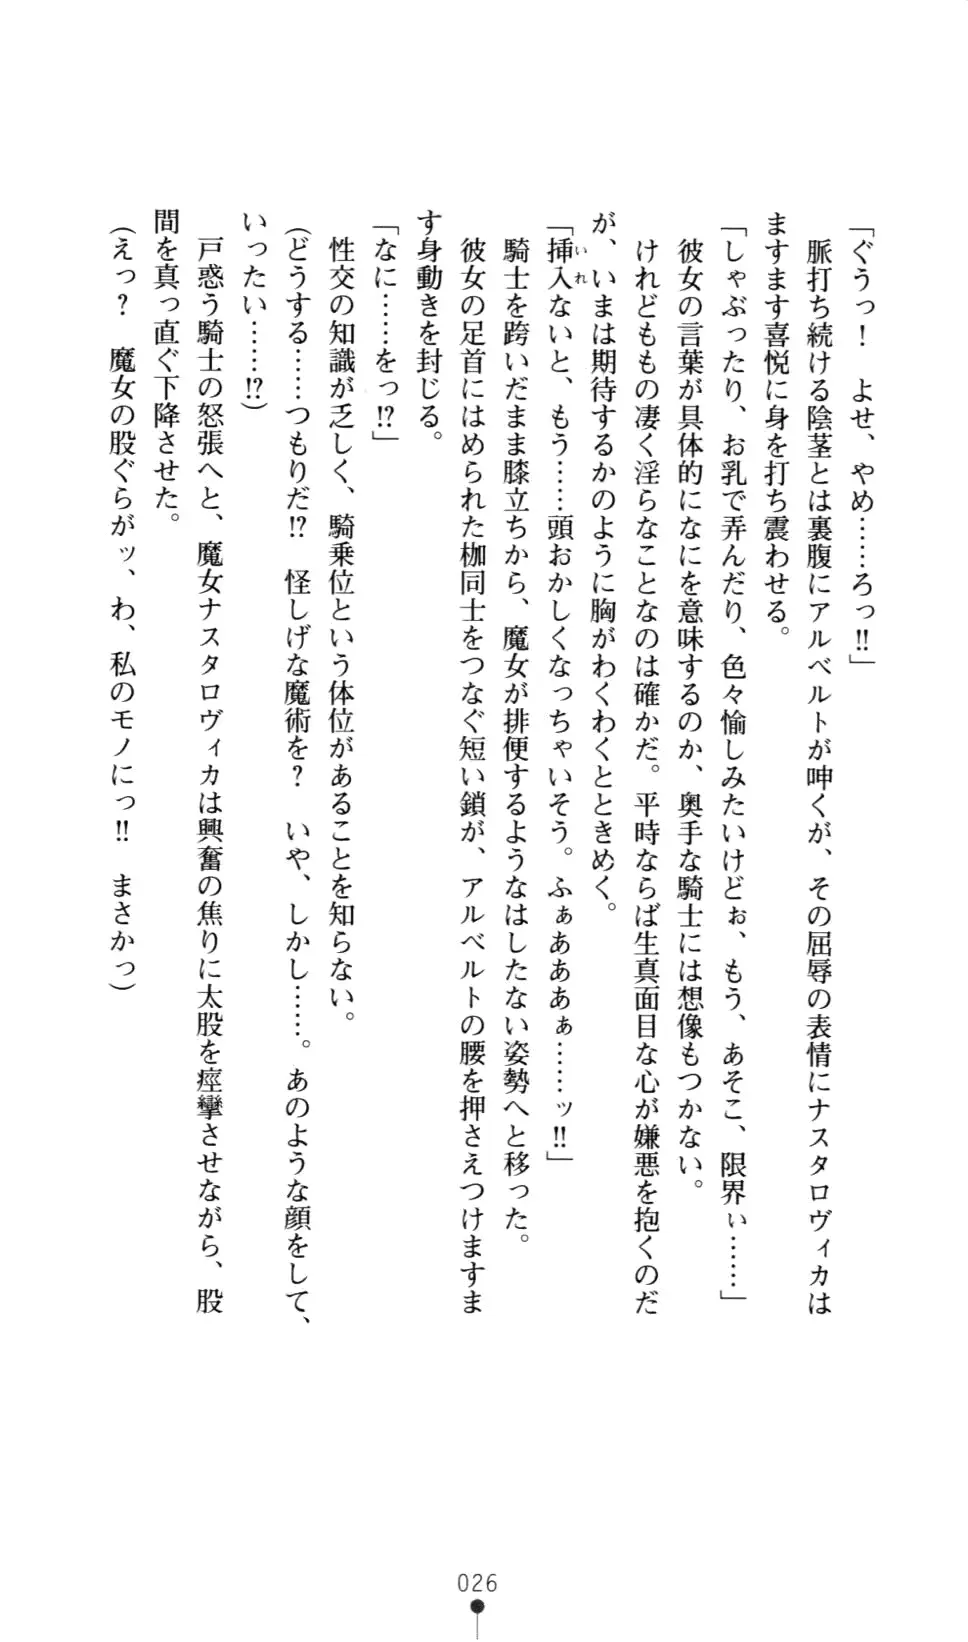 「ぐうっ！　よせ、やめ……ろっ‼」
　脈打ち続ける陰茎とは裏腹にアルベルトが呻くが、その屈辱の表情にナスタロヴィカは
ますます喜悦に身を打ち震わせる。
「しゃぶったり、お乳で弄んだり、色々愉しみたいけどぉ、もう、あそこ、限界ぃ……」
　彼女の言葉が具体的になにを意味するのか、奥手な騎士には想像もつかない。
　けれどももの凄く淫らなことなのは確かだ。平時ならば生真面目な心が嫌悪を抱くのだ
が、いまは期待するかのように胸がわくわくとときめく。
「挿入ないと、もう……頭おかしくなっちゃいそう。ふぁああぁ……ッ‼」
いれ
　騎士を跨いだまま膝立ちから、魔女が排便するようなはしたない姿勢へと移った。
　彼女の足首にはめられた枷同士をつなぐ短い鎖が、アルベルトの腰を押さえつけますま
す身動きを封じる。
「なに……をっ⁉」
　性交の知識が乏しく、騎乗位という体位があることを知らない。
（どうする……つもりだ⁉　怪しげな魔術を？　いや、しかし……。あのような顔をして、
いったい……⁉）
　戸惑う騎士の怒張へと、魔女ナスタロヴィカは興奮の焦りに太股を痙攣させながら、股
間を真っ直ぐ下降させた。
（えっ？　魔女の股ぐらがッ、わ、私のモノにっ‼　まさかっ）
026